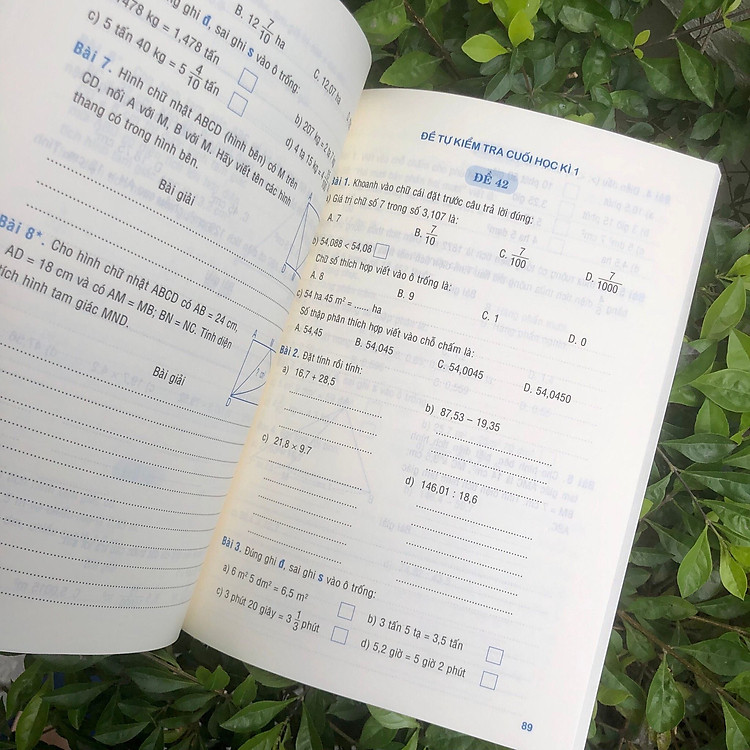 1,478 kg = 1,478 tấn
B. 12 7/10 ha
C. 12,07 ha
ng ghi đ, sai ghi s vào ô trống:
c) 5 tấn 40 kg = 5 4/10 tấn
b) 207 kg = 2
d) 4 tạ 15 kg =
Bài 7. Hình chữ nhật ABCD (hình bên) có M trên
CD, nối A với M, B với M. Hãy viết tên các hình
thang có trong hình bên.
Bài giải
Bài 8*. Cho hình chữ nhật ABCD có AB = 24 cm,
AD = 18 cm và có AM = MB; BN = NC. Tính diện
tích hình tam giác MND.
A
D
Bài giải
ĐỀ TỰ KIỂM TRA CUỐI HỌC KÌ 1
ĐỀ 42
Bài 1. Khoanh vào chữ cái đặt trước câu trả lời đúng:
a) Giá trị chữ số 7 trong số 3,107 là:
A. 7 B. 7/10 C. 7/100 D. 7/1000
b) 54,088 < 54,08
Chữ số thích hợp viết vào ô trống là:
A. 8 B. 9 C. 1 D. 0
c) 54 ha 45 m² = ...... ha
Số thập phân thích hợp viết vào chỗ chấm là:
A. 54,45 B. 54,045 C. 54,0045 D. 54,0450
Bài 2. Đặt tính rồi tính:
a) 16,7 + 28,5 b) 87,53 – 19,35
c) 21,8 × 9,7 d) 146,01 : 18,6
Bài 3. Đúng ghi đ, sai ghi s vào ô trống:
a) 6 m² 5 dm² = 6,5 m² b) 3 tấn 5 tạ = 3,5 tấn
c) 3 phút 20 giây = 3 1/3 phút d) 5,2 giờ = 5 giờ 2 phút
89